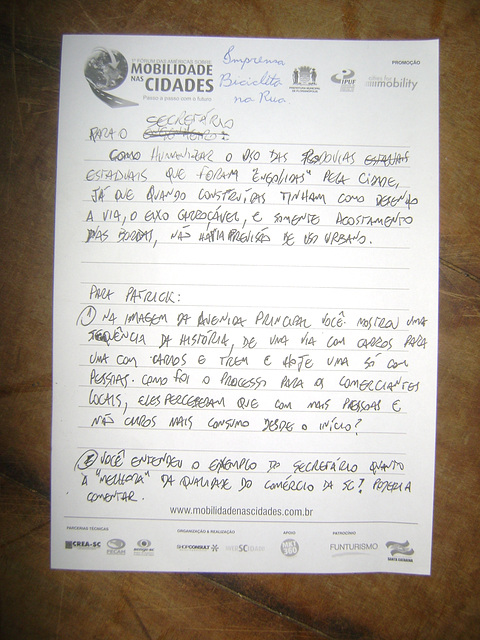 1º FÓRUM DAS AMÉRICAS SOBRE
MOBILIDADE
NAS CIDADES
Passo a passo com o futuro
Imprensa
Bicicleta
na Rua.
PROMOÇÃO
IPUF
cities for mobility
SECRETÁRIO
PARA O ENGENHEIRO:
COMO HUMANIZAR O USO DAS RODOVIAS
ESTADUAIS QUE FORAM "ENGOLIDAS" PELA CIDADE,
JÁ QUE QUANDO CONSTRUÍDAS TINHAM COMO DESENHO
A VIA, O EIXO CARROÇÁVEL, E SOMENTE ACOSTAMENTO
NAS BORDAS, NÃO HAVIA PREVISÃO DE USO URBANO.
PARA PATRICK:
1 NA IMAGEM DA AVENIDA PRINCIPAL VOCÊ MOSTROU UMA
SEQUÊNCIA DA HISTÓRIA, DE UMA VIA COM CARROS PARA
UMA COM CARROS E TREM E HOJE UMA SÓ COM
PESSOAS. COMO FOI O PROCESSO PARA OS COMERCIANTES
LOCAIS, ELES PERCEBERAM QUE COM MAIS PESSOAS E
NÃO CARROS MAIS CONSUMO DESDE O INÍCIO?
2 VOCÊ ENTENDEU O EXEMPLO DO SECRETÁRIO QUANTO
À "MELHORA" DA QUALIDADE DO COMÉRCIO DA SC? PODERIA
COMENTAR.
www.mobilidadenascidades.com.br
PARCERIAS TÉCNICAS
ORGANIZAÇÃO & REALIZAÇÃO
APOIO
PATROCÍNIO
CREA-SC
FECAM
SHOPCONSULT
MKT 360
FUNTURISMO
SANTA CATARINA